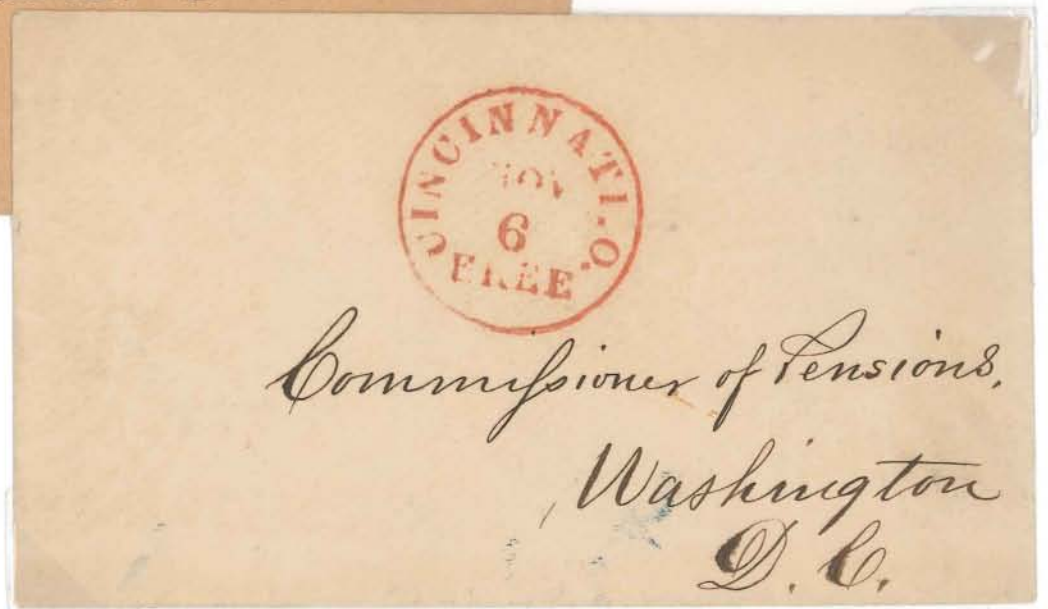 CINCINNATI. O.
NOV
6
FREE.
Commissioner of Pensions,
Washington
D. C.